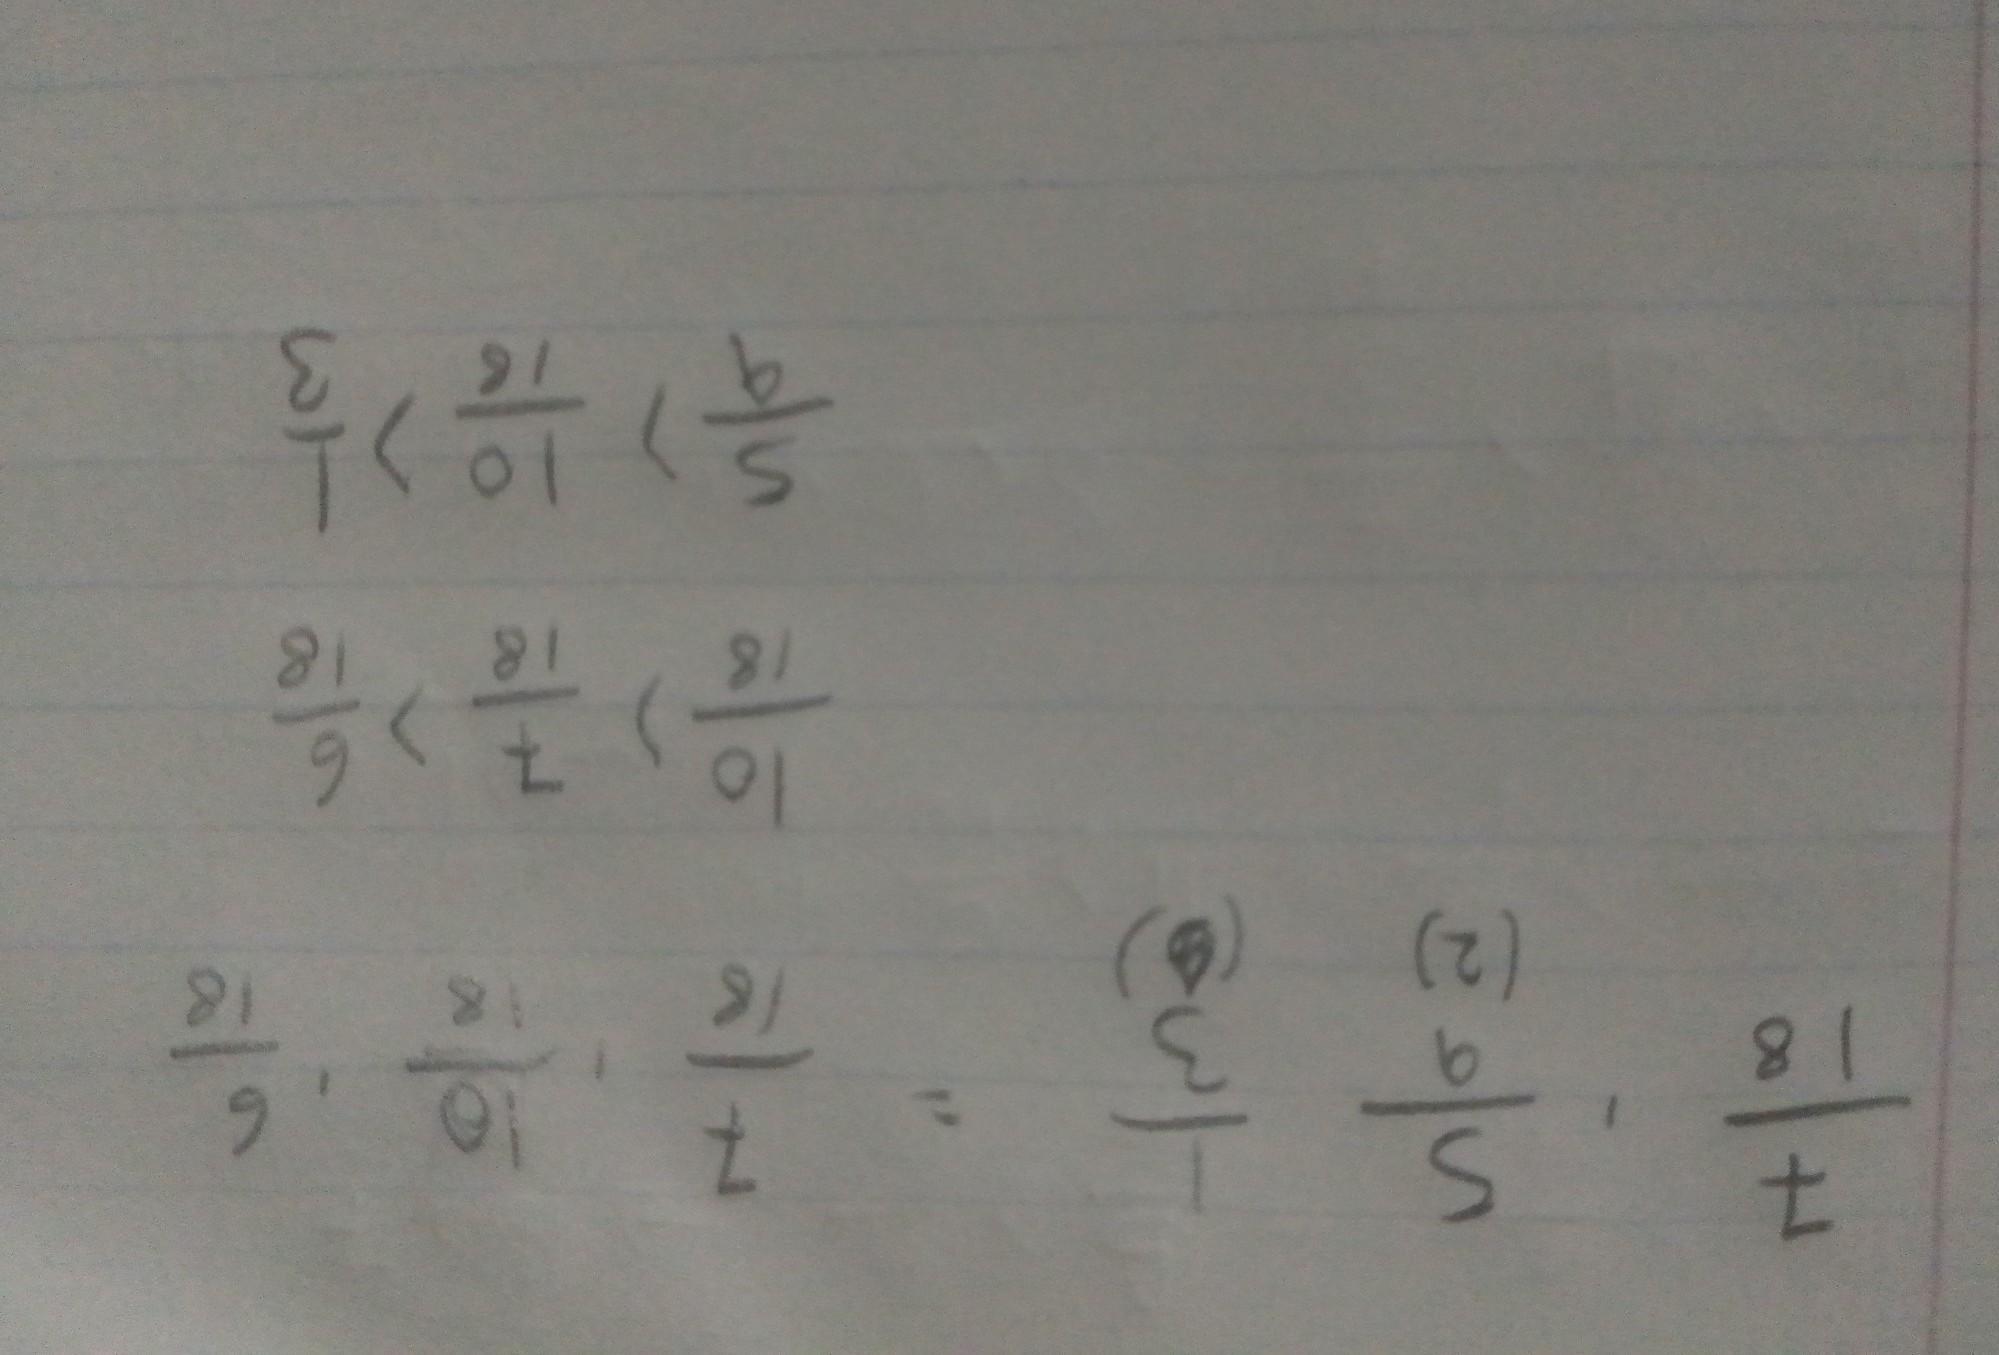 7/18 , 5/9 (2) 1/3 = 7/18 , 10/18 , 6/18
10/18 > 7/18 > 6/18
5/9 > 10/18 > 1/3